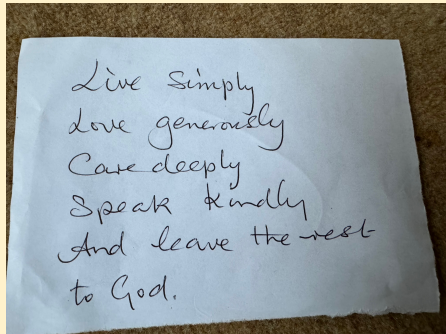 Live Simply
Love generously
Care deeply
Speak kindly
And leave the rest
to God.